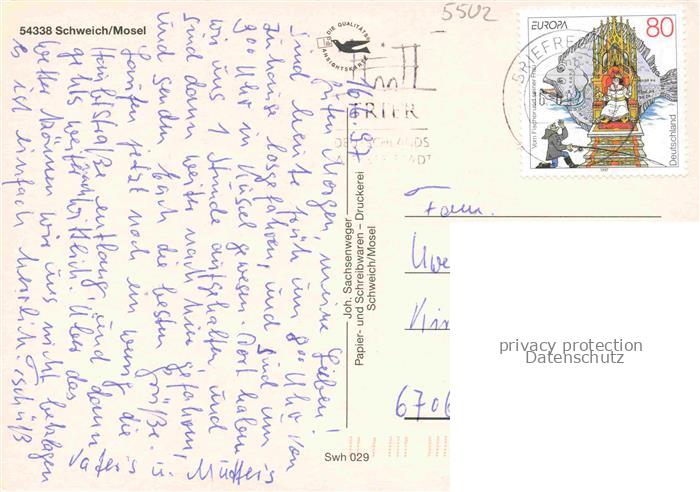 54338 Schweich/Mosel
5502
DIE QUALITÄTS
ANSICHTSKARTE
EUROPA
80
Vom Fischer und seiner Frau
Deutschland
1997
BRIEFRE
TRIER
DEUTSCHLANDS
16.6.97
Guten Morgen, meine Lieben!
Sind heute früh um 8⁰⁰ Uhr von
zuhause losgefahren, und sind um
9⁰⁰ Uhr in Kusel gewesen. Dort haben
wir uns 1 Stunde aufgehalten, und
sind dann weiter nach hier gefahren,
und senden Euch die besten Grüße.
Laufen jetzt noch ein wenig die
Hauptstraße entlang, und dann
gehts weiter nach Wittlich. Über das
Wetter können wir uns nicht beklagen
es ist einfach herrlich. Tschüß
Vatis u. Muttis
Joh. Sachsenweger
Papier- und Schreibwaren – Druckerei
Schweich/Mosel
Swh 029
Fam.
Uwe
6706
privacy protection
Datenschutz